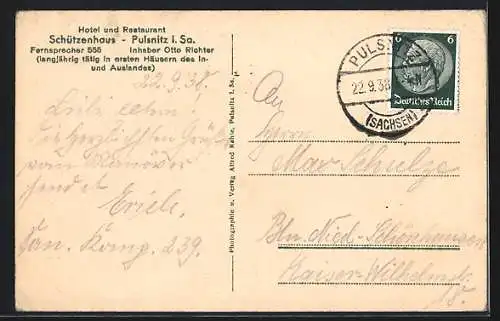 Hotel und Restaurant
Schützenhaus - Pulsnitz i. Sa.
Fernsprecher 555 Inhaber Otto Richter
(langjährig tätig in ersten Häusern des In-
und Auslandes)
22.9.38.
herzlichsten Grüße
vom Manöver
sendet
San. Komp. 239.
Photographie u. Verlag Alfred Kahle, Pulsnitz i. Sa.
PULSNITZ
22.9.38
(SACHSEN)
6 6
Deutsches Reich
An
Herrn
Max Schulze
Bln. Nied.-Schönhausen
Kaiser-Wilhelmstr.